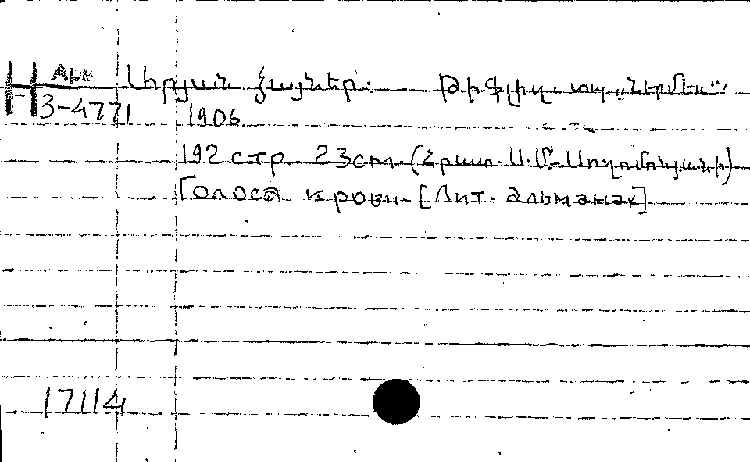 Արյան ձայներ. Թիֆլիս. տպ. „Հերմէս“,
3-4771 1906
192 стр. 23см. (Հրատ. Ա. Մ. Սողոմոնյանի)
Голоса крови. [Лит. альманах]
17114